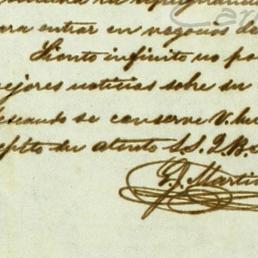 para entrar en negocios de
Siento infinito no po
mejores noticias sobre su
seando se conserve V. bu
epto su atento S.S. Q.B.S
Martin